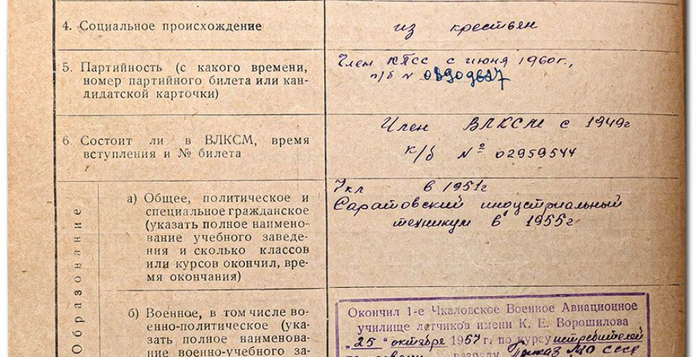 4. Социальное происхождение
из крестьян
5. Партийность (с какого времени,
номер партийного билета или кан-
дидатской карточки)
Член КПСС с июня 1960г.,
п/б №
6. Состоит ли в ВЛКСМ, время
вступления и № билета
Член ВЛКСМ с 1949г
к/б № 02959544
Образование
а) Общее, политическое и
специальное гражданское
(указать полное наимено-
вание учебного заведе-
ния и сколько классов
или курсов окончил, вре-
мя окончания)
7кл в 1951г
Саратовский индустриальный
техникум в 1955г
б) Военное, в том числе во-
енно-политическое (ука-
зать полное наименова
ние военно-учебного за-
Окончил 1-е Чкаловское Военное Авиационное
училище летчиков имени К. Е. Ворошилова
"25" октября 1957 г. по курсу истребителей
разряду Приказ МО СССР